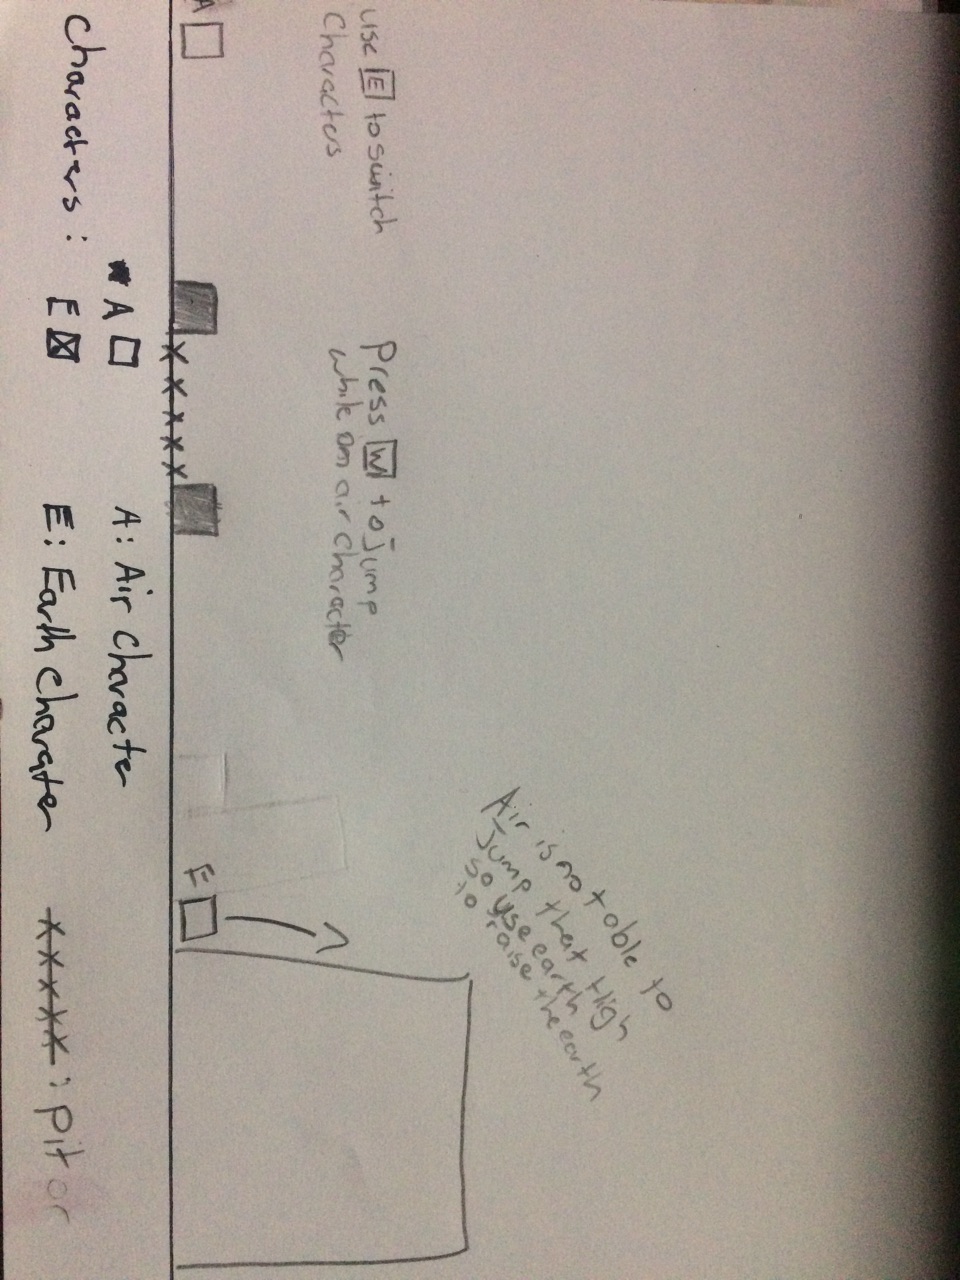 Air is not able to
Jump that High
so use earth
to raise the earth
use E to switch
Characters
Press W to jump
while on air character
A
E
A
A: Air Character
characters:
E
E: Earth Charater
xxxxx : pit or